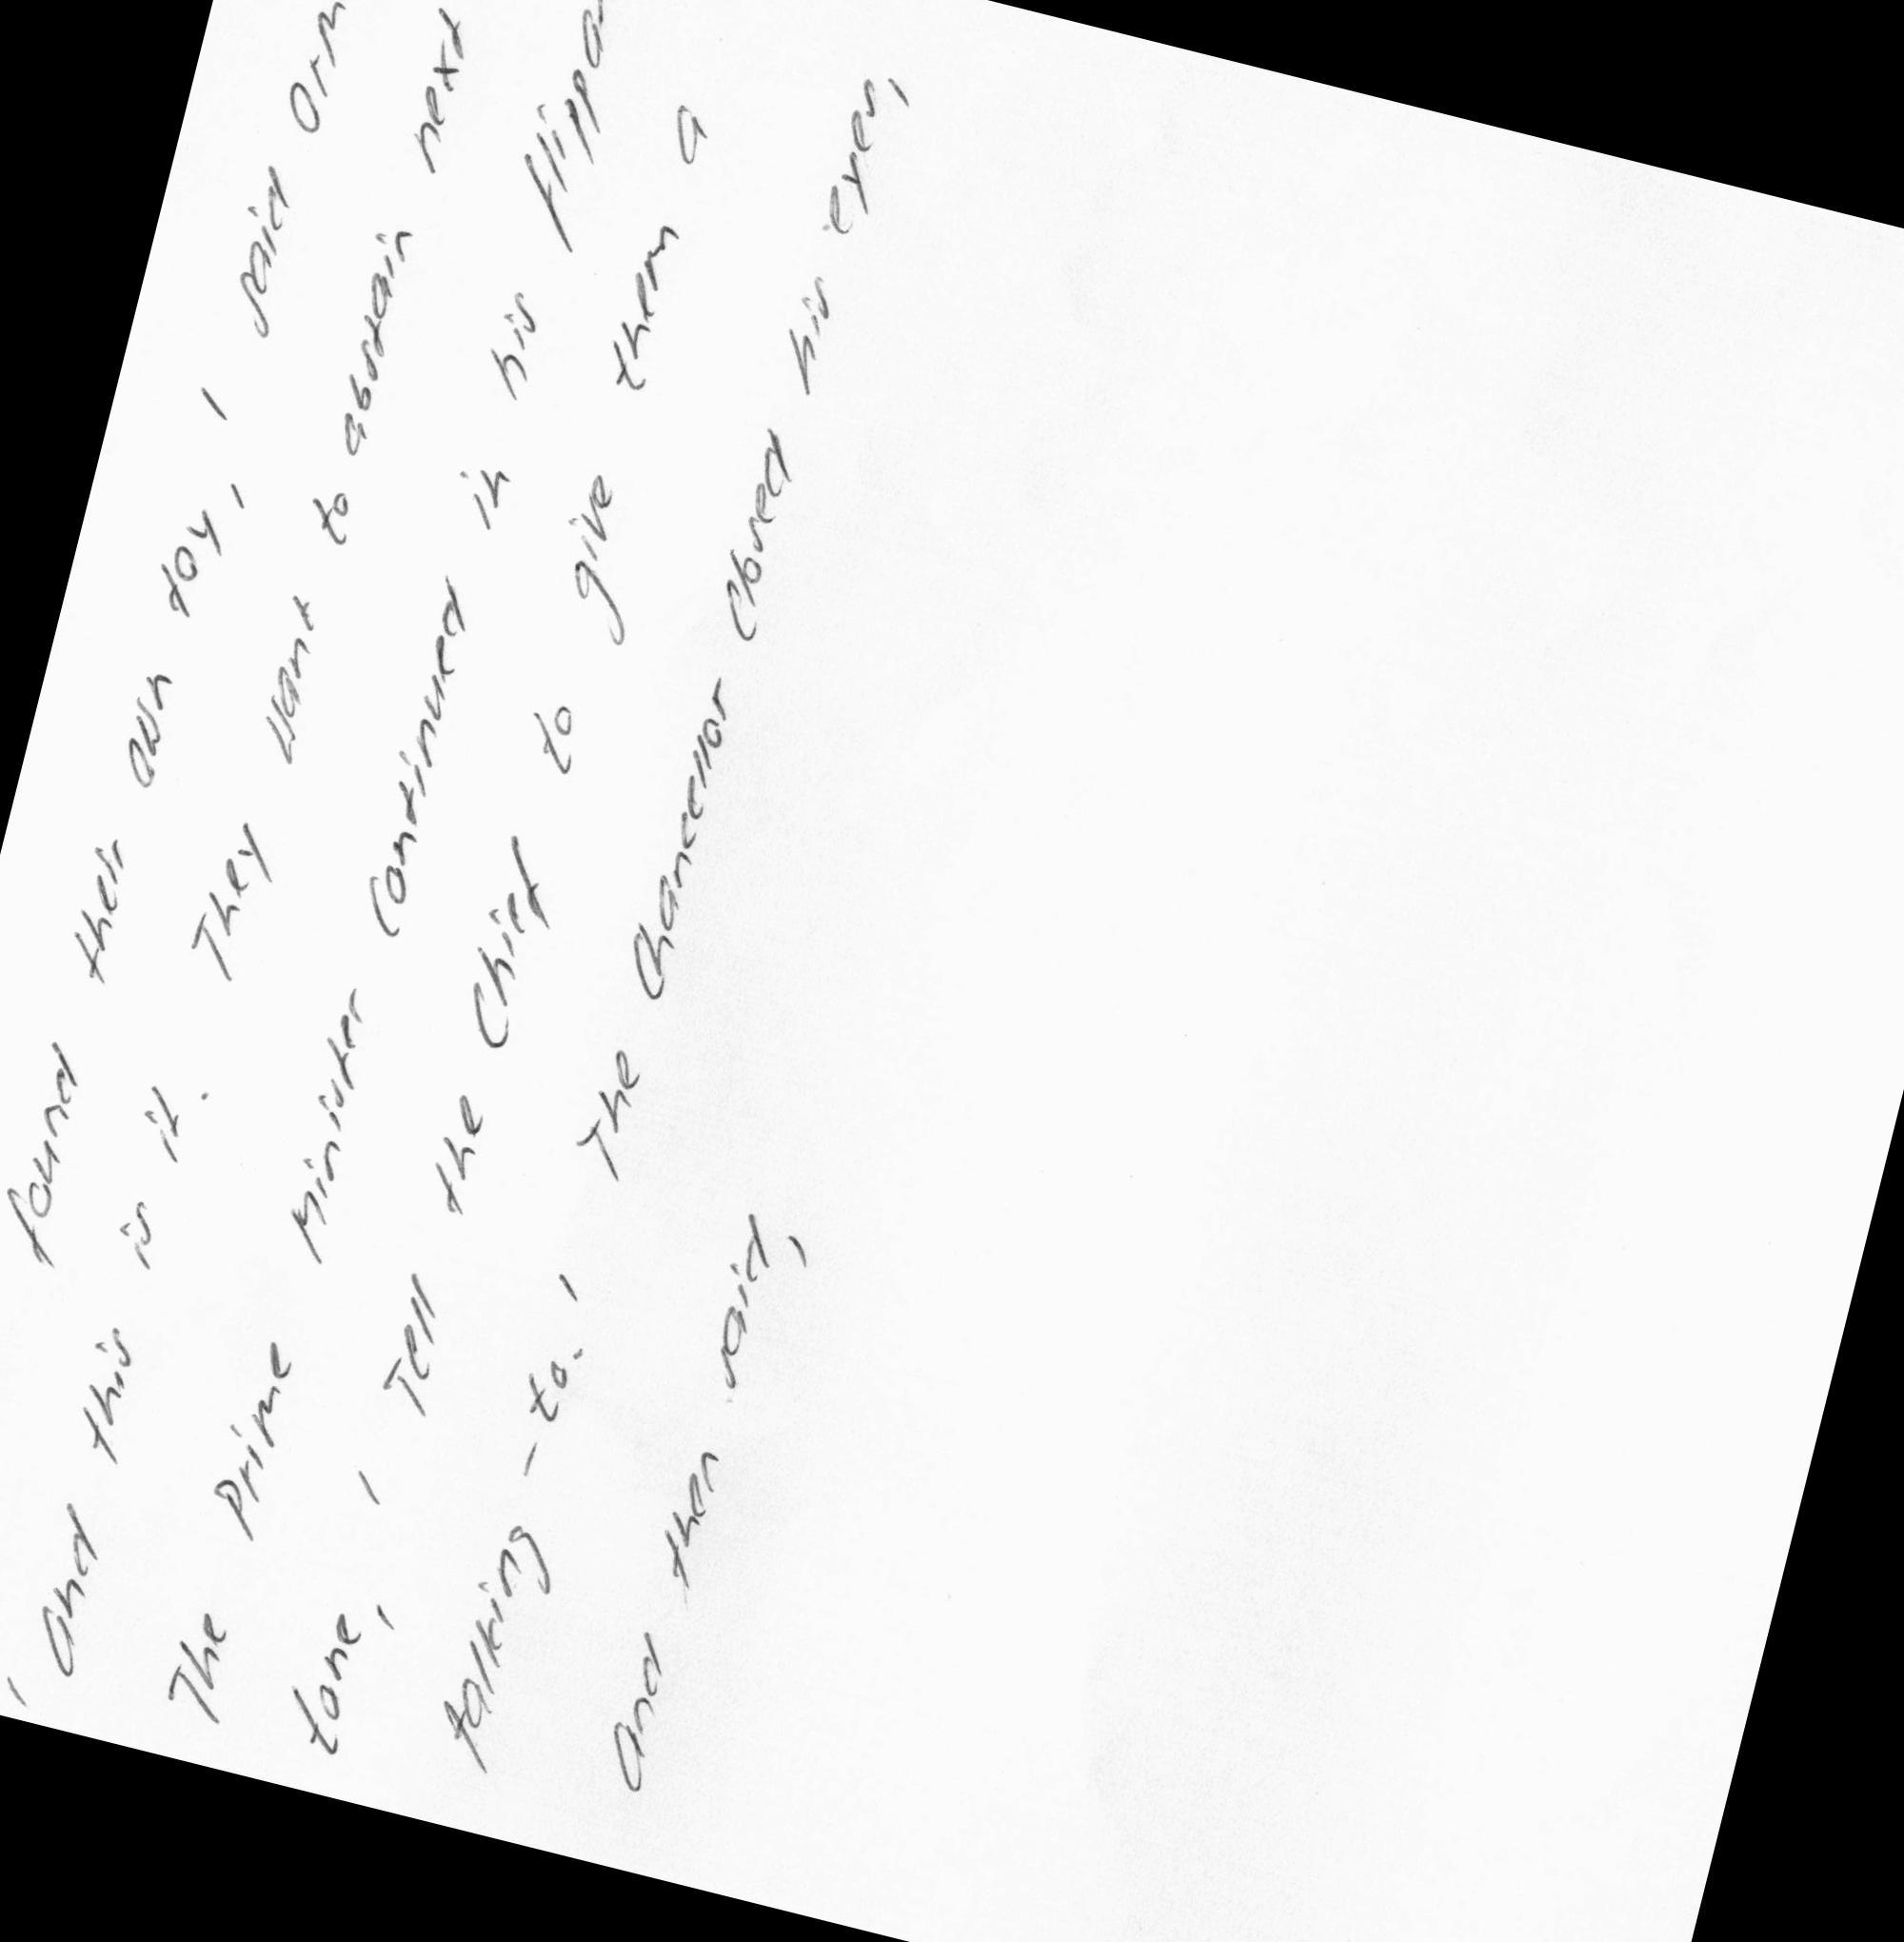 found their own toy,' said Orm
'And this is it. They want to abstain next
The Prime Minister continued in his flippa
tone, 'Tell the Chief to give them a
talking-to.' The Chancellor closed his eyes,
and then said,